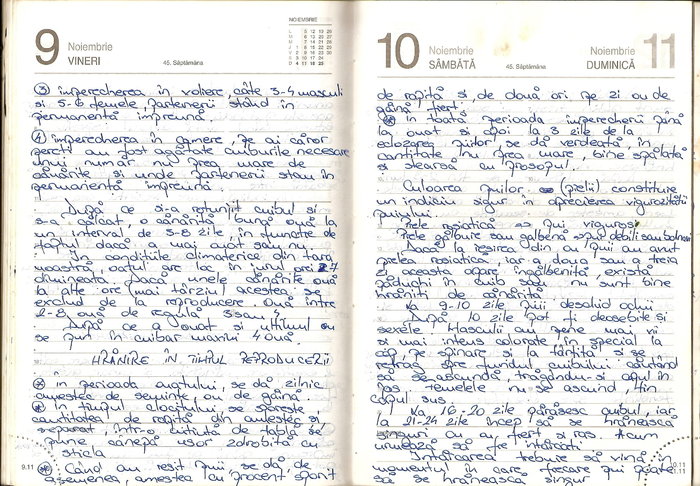 9 Noiembrie
VINERI
45. Săptămâna
NOIEMBRIE
L 5 12 19 26
M 6 13 20 27
M 7 14 21 28
J 1 8 15 22 29
V 2 9 16 23 30
S 3 10 17 24
D 4 11 18 25
③ împerecherea în voliere, câte 3-4 masculi
si 5-6 femele, partenerii stând în
permanentă împreună.
④ împerecherea în camere, pe ai căror
pereți au fost agățate cuiburile necesare
unui număr nu prea mare de
cănărițe si unde partenerii stau în
permanentă împreună.
După ce si-a rotunjit cuibul si
s-a călcat, o cănăriță bună ouă la
un interval de 5-8 zile, în funcție de
faptul dacă a mai ouat sau nu.
În condițiile climaterice din țara
noastră, ouatul are loc în jurul orei 7
dimineața. Dacă unele cănărite ouă
la alte ore mai târziu, acestea se
exclud de la reproducere. Ouă între
2-8 ouă de regulă 3 sau 4.
După ce a ouat si ultimul ou
se pun în cuibar maxim 4 ouă.
HRĂNIRE ÎN TIMPUL REPRODUCERII
în perioada ouatului, se dă zilnic
amestec de seminte, ou de găină.
În timpul clocitului se sporeste
cantitatea de rapiță din amestec si
separat, într-o cutiută de tablă se
pune cânepă usor zdrobită cu
sticla
Când au iesit puii se dă, de
asemenea, amestec cu procent sporit
9.11
10 Noiembrie
SÂMBĂTĂ
45. Săptămâna
Noiembrie 11
DUMINICĂ
de rapiță si, de două ori pe zi ou de
găină fiert.
În toată perioada împerecherii până
la ouat si apoi la 3 zile de la
eclozarea puilor, se dă verdeață, în
cantitate nu prea mare, bine spălată
si stearsă cu prosopul.
Culoarea puilor (pielii) constituie
un indiciu sigur în aprecierea vigurozității
puiului.
Piele rosiatică => pui vigurosi
Piele gălbuie sau galbenă => pui debili sau bolnavi
Dacă la iesirea din ou puii au avut
pielea rosiatică, iar a doua sau a treia
zi aceasta apare îngălbenită, există
păduchi în cuib sau nu sunt bine
hrăniti de cănăriță.
La 9-10 zile puii deschid ochii.
După 10 zile pot fi deosebite si
sexele. Masculii au pene mai vii
si mai intens colorate, în special la
cap, pe spinare si la târtiță si se
retrag spre fundul cuibului căutând
să se ascundă, trăgându-si capul în
jos. Femelele nu se ascund, tin
capul sus.
La 16-20 zile părăsesc cuibul, iar
la 21-24 zile încep să se hrănească
singuri cu ou fiert si ras. Acum
urmează să fie întărcati.
Întărcarea trebuie să vină în
momentul în care fiecare pui poate
să se hrănească singur
10.11
11.11